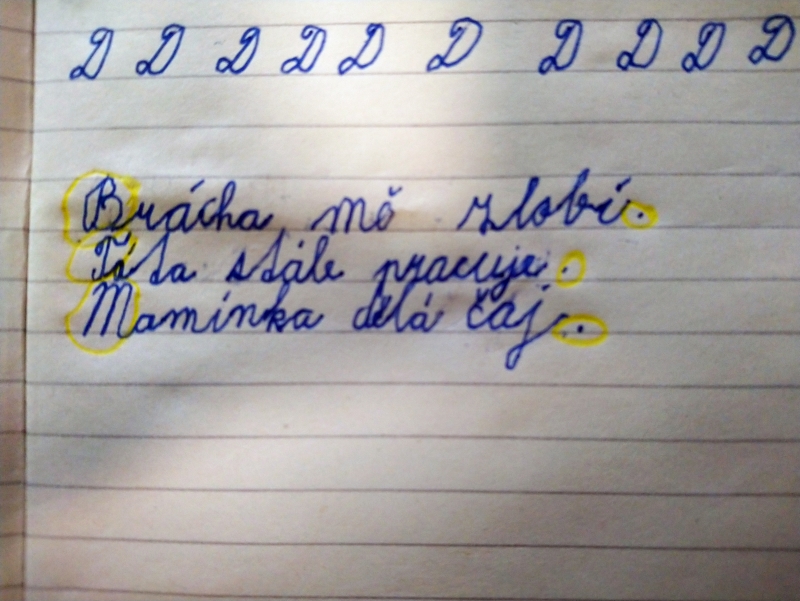 D D D D D D D D D D
Brácha mě zlobí.
Táta stále pracuje.
Maminka dělá čaj..